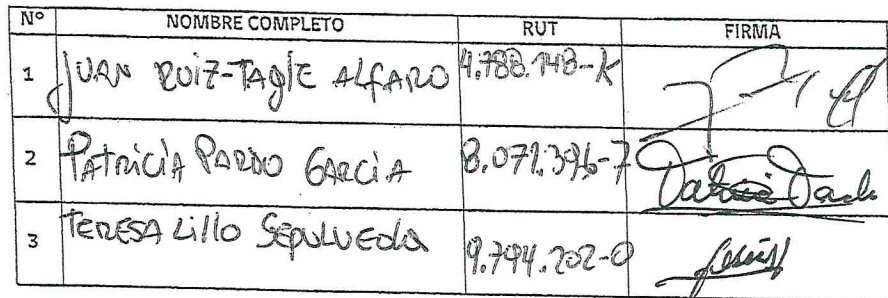 Nº NOMBRE COMPLETO RUT FIRMA
1 JUAN RUIZ-TAGLE ALFARO 4.788.148-K
2 PATRICIA PARDO GARCIA 8.071.396-7
3 TERESA Lillo SEPULVEDA 9.794.202-0